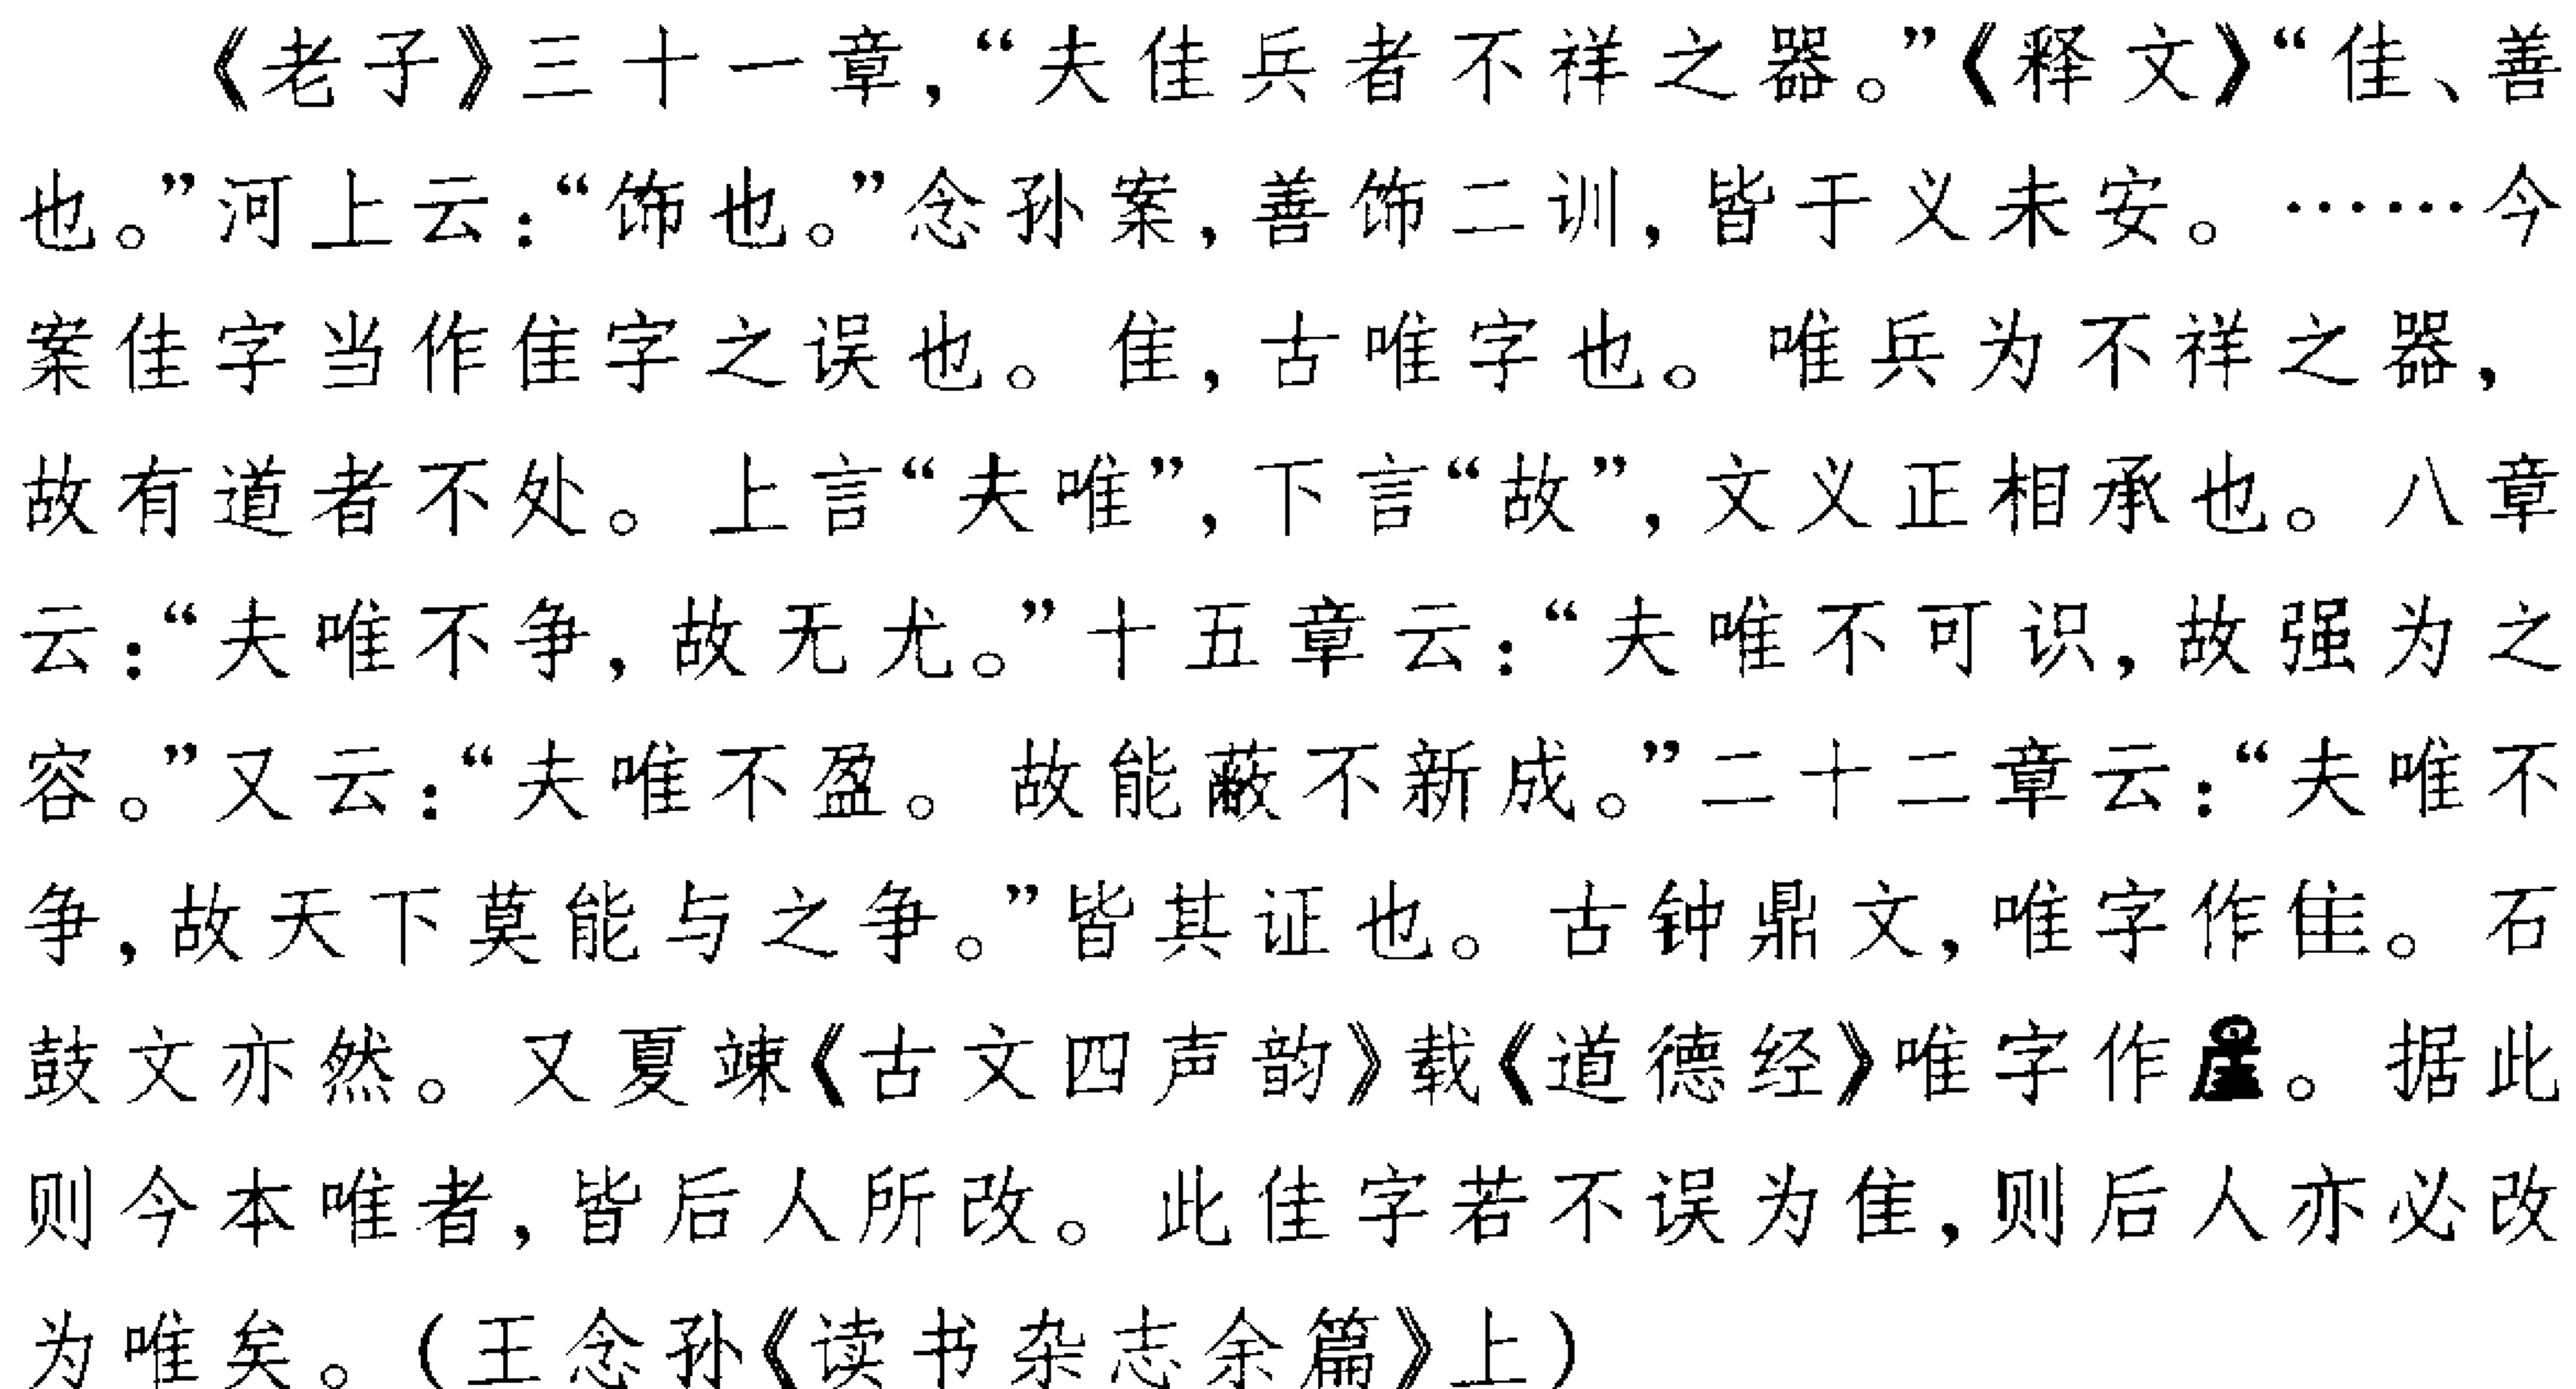 《老子》三十一章，“夫佳兵者不祥之器。”《释文》“佳、善
也。”河上云：“饰也。”念孙案，善饰二训，皆于义未安。……今
案佳字当作隹字之误也。隹，古唯字也。唯兵为不祥之器，
故有道者不处。上言“夫唯”，下言“故”，文义正相承也。八章
云：“夫唯不争，故无尤。”十五章云：“夫唯不可识，故强为之
容。”又云：“夫唯不盈。故能蔽不新成。”二十二章云：“夫唯不
争，故天下莫能与之争。”皆其证也。古钟鼎文，唯字作隹。石
鼓文亦然。又夏竦《古文四声韵》载《道德经》唯字作。据此
则今本唯者，皆后人所改。此佳字若不误为隹，则后人亦必改
为唯矣。(王念孙《读书杂志余篇》上)